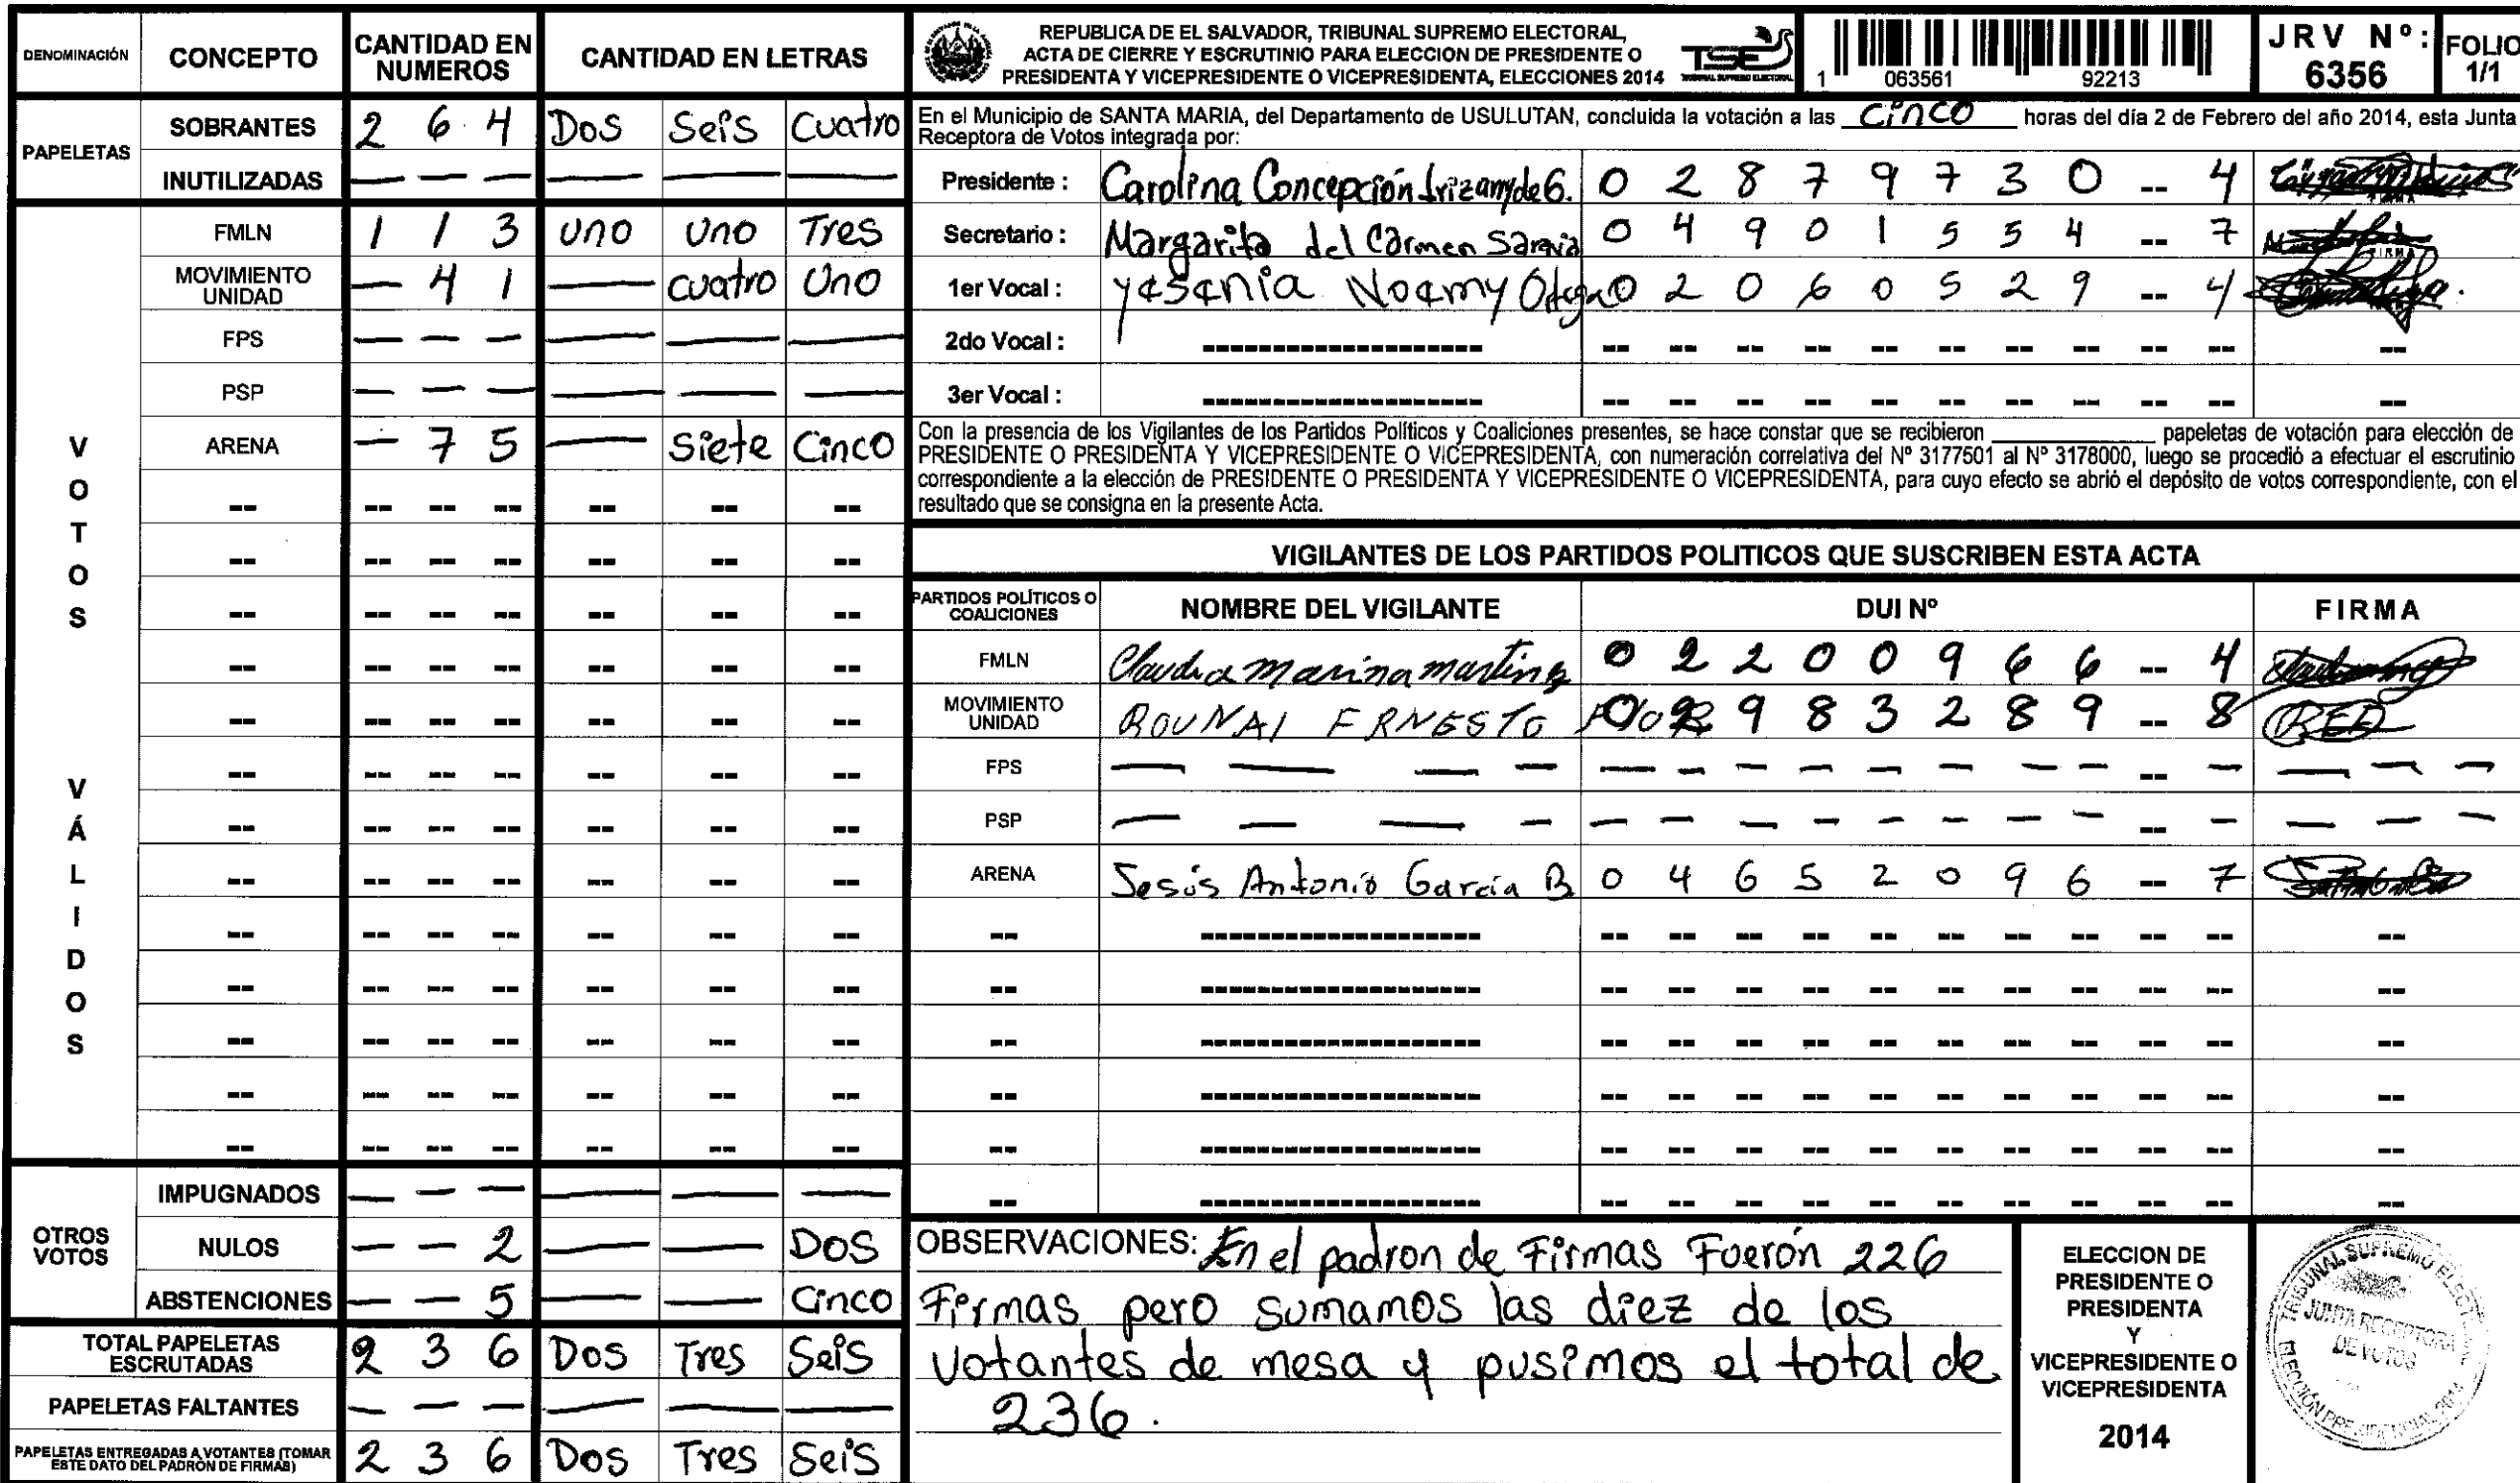 DENOMINACIÓN CONCEPTO CANTIDAD EN NUMEROS CANTIDAD EN LETRAS
PAPELETAS
SOBRANTES 2 6 4 Dos Seis Cuatro
INUTILIZADAS — — — — — —
VOTOS VÁLIDOS
FMLN 1 1 3 uno uno Tres
MOVIMIENTO UNIDAD — 4 1 — cuatro Uno
FPS — — — — — —
PSP — — — — — —
ARENA — 7 5 — Siete Cinco
-- -- -- -- -- -- --
-- -- -- -- -- -- --
-- -- -- -- -- -- --
-- -- -- -- -- -- --
-- -- -- -- -- -- --
-- -- -- -- -- -- --
-- -- -- -- -- -- --
-- -- -- -- -- -- --
-- -- -- -- -- -- --
-- -- -- -- -- -- --
-- -- -- -- -- -- --
-- -- -- -- -- -- --
-- -- -- -- -- -- --
OTROS VOTOS
IMPUGNADOS — — — — — —
NULOS — — 2 — — Dos
ABSTENCIONES — — 5 — — Cinco
TOTAL PAPELETAS ESCRUTADAS 2 3 6 Dos Tres Seis
PAPELETAS FALTANTES — — — — — —
PAPELETAS ENTREGADAS A VOTANTES (TOMAR ESTE DATO DEL PADRÓN DE FIRMAS) 2 3 6 Dos Tres Seis
REPUBLICA DE EL SALVADOR, TRIBUNAL SUPREMO ELECTORAL,
ACTA DE CIERRE Y ESCRUTINIO PARA ELECCION DE PRESIDENTE O
PRESIDENTA Y VICEPRESIDENTE O VICEPRESIDENTA, ELECCIONES 2014
TSE
TRIBUNAL SUPREMO ELECTORAL
1 063561 92213
JRV Nº: 6356
FOLIO 1/1
En el Municipio de SANTA MARIA, del Departamento de USULUTAN, concluida la votación a las cinco horas del día 2 de Febrero del año 2014, esta Junta
Receptora de Votos integrada por:
Presidente : Carolina Concepción de G. 0 2 8 7 9 7 3 0 -- 4
Secretario : Margarita del Carmen Saravia 0 4 9 0 1 5 5 4 -- 7
1er Vocal : Yesenia Noemy 0 2 0 6 0 5 2 9 -- 4
2do Vocal : -------------------- -- -- -- -- -- -- -- -- -- -- --
3er Vocal : -------------------- -- -- -- -- -- -- -- -- -- -- --
Con la presencia de los Vigilantes de los Partidos Políticos y Coaliciones presentes, se hace constar que se recibieron ________ papeletas de votación para elección de
PRESIDENTE O PRESIDENTA Y VICEPRESIDENTE O VICEPRESIDENTA, con numeración correlativa del Nº 3177501 al Nº 3178000, luego se procedió a efectuar el escrutinio
correspondiente a la elección de PRESIDENTE O PRESIDENTA Y VICEPRESIDENTE O VICEPRESIDENTA, para cuyo efecto se abrió el depósito de votos correspondiente, con el
resultado que se consigna en la presente Acta.
VIGILANTES DE LOS PARTIDOS POLITICOS QUE SUSCRIBEN ESTA ACTA
PARTIDOS POLÍTICOS O COALICIONES NOMBRE DEL VIGILANTE DUI Nº FIRMA
FMLN Claudia Marina 0 2 2 0 0 9 6 6 -- 4
MOVIMIENTO UNIDAD ERNESTO 9 8 3 2 8 9 -- 8
FPS — — — — — — — — — — — — -- — — — —
PSP — — — — — — — — — — — — -- — — — —
ARENA Jesús Antonio García B 0 4 6 5 2 0 9 6 -- 7
-- -------------------- -- -- -- -- -- -- -- -- -- -- --
-- -------------------- -- -- -- -- -- -- -- -- -- -- --
-- -------------------- -- -- -- -- -- -- -- -- -- -- --
-- -------------------- -- -- -- -- -- -- -- -- -- -- --
-- -------------------- -- -- -- -- -- -- -- -- -- -- --
-- -------------------- -- -- -- -- -- -- -- -- -- -- --
OBSERVACIONES: En el padron de Firmas Fuerón 226
Firmas pero sumamos las diez de los
votantes de mesa y pusimos el total de
236.
ELECCION DE
PRESIDENTE O
PRESIDENTA
Y
VICEPRESIDENTE O
VICEPRESIDENTA
2014
TRIBUNAL SUPREMO
JUNTA RECEPTORA
DE VOTOS